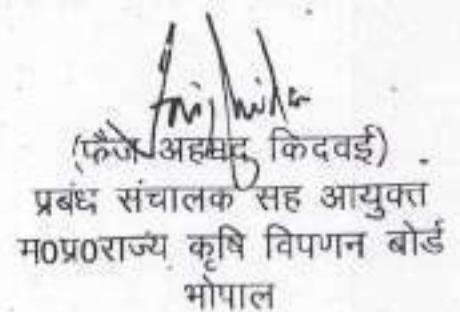 (फैज अहमद किदवई)
प्रबंध संचालक सह आयुक्त
म0प्र0राज्य कृषि विपणन बोर्ड
भोपाल